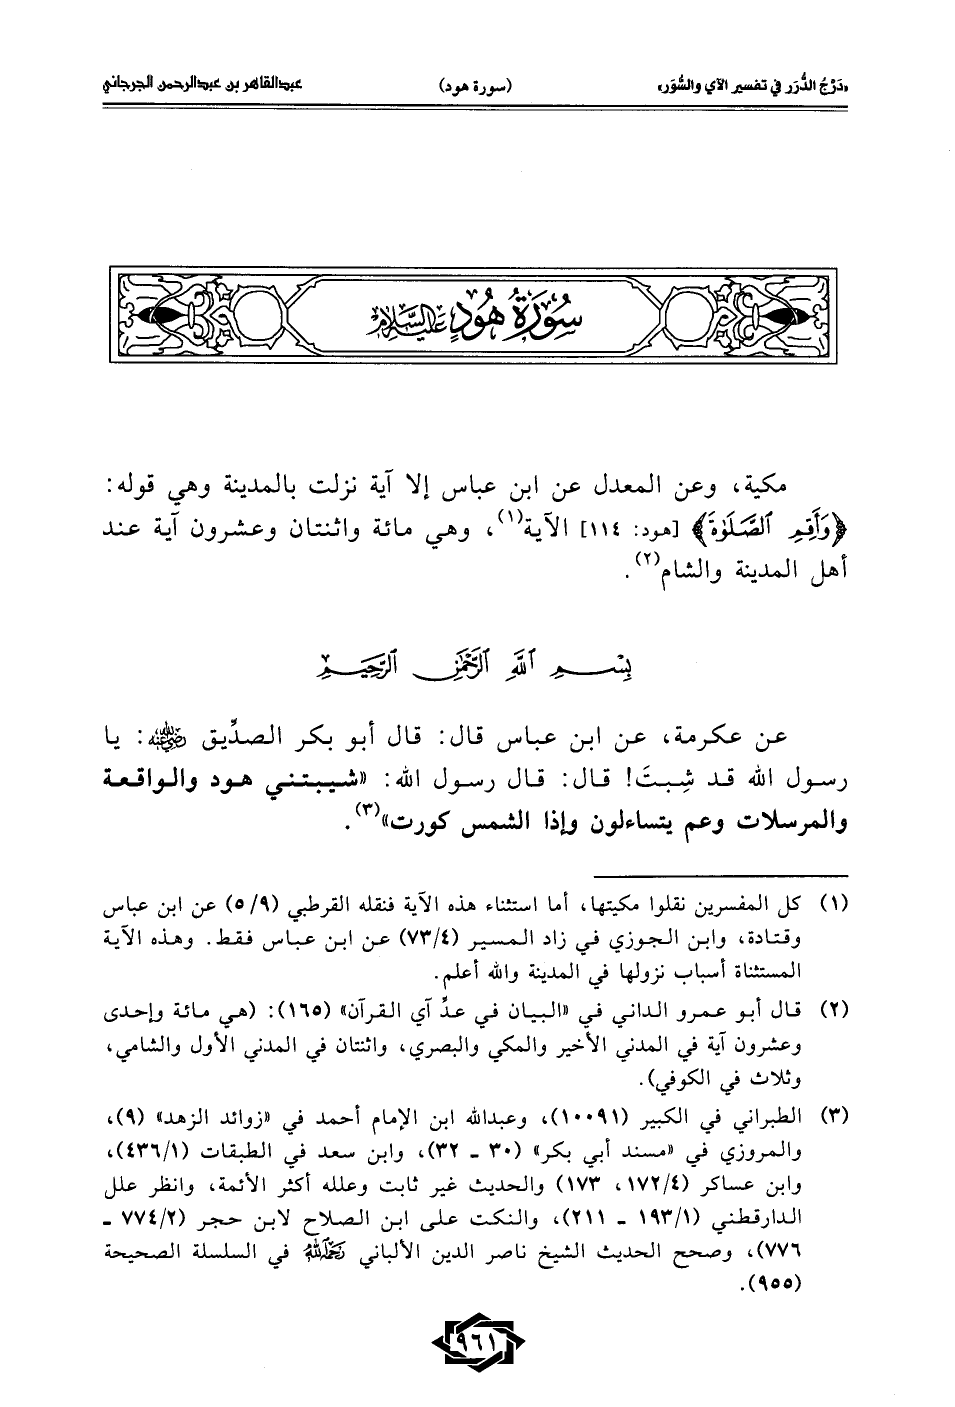 «دَرْجُ الدُّرَر في تفسير الآي والسُّوَر» (سورة هود) عبدالقاهر بن عبدالرحمن الجرجاني
سُورَةُ هُودٍ عليه السلام
مكية، وعن المعدل عن ابن عباس إلا آية نزلت بالمدينة وهي قوله:
﴿وَأَقِمِ ٱلصَّلَوٰةَ﴾ [هود: ١١٤] الآية(١)، وهي مائة واثنتان وعشرون آية عند
أهل المدينة والشام(٢).
بِسْمِ ٱللَّهِ ٱلرَّحْمَٰنِ ٱلرَّحِيمِ
عن عكرمة، عن ابن عباس قال: قال أبو بكر الصدِّيق رضي الله عنه: يا
رسول الله قد شِبتَ! قال: قال رسول الله: «شيبتني هود والواقعة
والمرسلات وعم يتساءلون وإذا الشمس كورت»(٣).
(١) كل المفسرين نقلوا مكيتها، أما استثناء هذه الآية فنقله القرطبي (٥/٩) عن ابن عباس
وقتادة، وابن الجوزي في زاد المسير (٧٣/٤) عن ابن عباس فقط. وهذه الآية
المستثناة أسباب نزولها في المدينة والله أعلم.
(٢) قال أبو عمرو الداني في «البيان في عدِّ آي القرآن» (١٦٥): (هي مائة وإحدى
وعشرون آية في المدني الأخير والمكي والبصري، واثنتان في المدني الأول والشامي،
وثلاث في الكوفي).
(٣) الطبراني في الكبير (١٠٠٩١)، وعبدالله ابن الإمام أحمد في «زوائد الزهد» (٩)،
والمروزي في «مسند أبي بكر» (٣٠ ـ ٣٢)، وابن سعد في الطبقات (٤٣٦/١)،
وابن عساكر (١٧٢/٤، ١٧٣) والحديث غير ثابت وعلله أكثر الأئمة، وانظر علل
الدارقطني (١٩٣/١ ـ ٢١١)، والنكت على ابن الصلاح لابن حجر (٧٧٤/٢ ـ
٧٧٦)، وصحح الحديث الشيخ ناصر الدين الألباني رحمه الله في السلسلة الصحيحة
(٩٥٥).
٩٦١